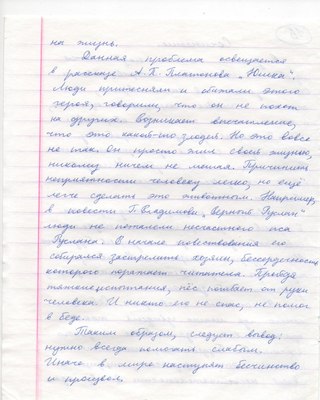 на жизнь.
Данная проблема освещается
в рассказе А.П. Платонова "Юшка".
Люди притесняли и обижали этого
героя, говорили, что он не похож
на других. Возникает впечатление,
что это какой-то злодей. Но это вовсе
не так. Он просто жил своей жизнью,
никому ничем не мешая. Причинить
неприятности человеку легко, но ещё
легче сделать это животным. Например,
в повести Г. Владимова "Верный Руслан"
люди не пожалели несчастного пса
Руслана. В начале повествования его
собирался застрелить хозяин, бессердечность
которого поражает читателя. Пройдя
тяжёлые испытания, пёс погибает от руки
человека. И никто его не спас, не помог
в беде.
Таким образом, следует вывод:
нужно всегда помогать слабым.
Иначе в мире наступят бесчинство
и произвол.